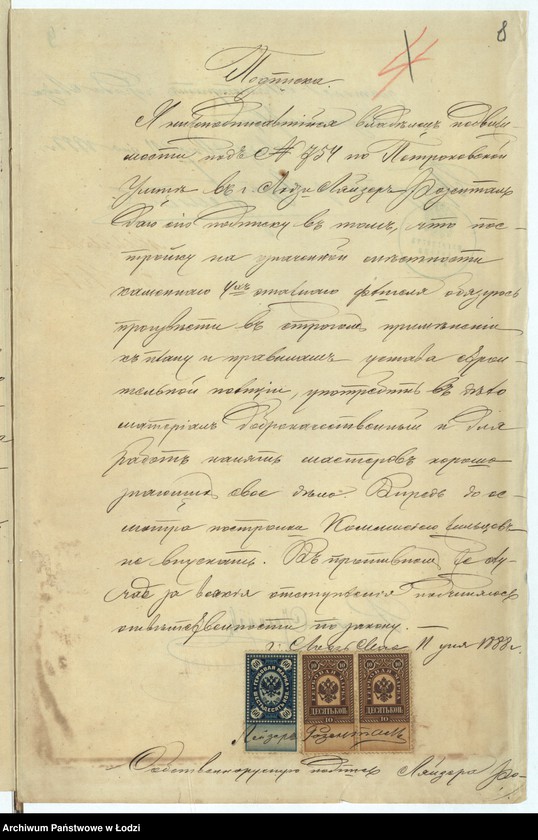 8
4
Подписка.
Я нижеподписавшійся владѣлецъ недвижи-
мости подъ № 754 по Петроковской
Улицѣ въ г. Лодзи Ляйзеръ Розенталь
даю сію подписку въ томъ, что пос-
тройку на означенной мѣстности
каменнаго 4хъ этажнаго флигеля обязуюсь
произвести въ строгомъ примѣненіи
къ плану и правиламъ устава строи-
тельной полиціи, употребить въ дѣло
матеріалъ доброкачественный и для
работъ нанять мастеровъ хорошо
знающихъ свое дѣло. Впредь до ос-
мотра постройки Коммисіею жильцовъ
не впускать. Въ противномъ же слу-
чаѣ за всякія отступленія подчиняюсь
отвѣтственности по закону.
г. Лодзь 11 1888 г.
60 60
ГЕРБОВАЯ МАРКА
ШЕСТЬДЕСЯТЪ КОП.
60 60
10 10
ДЕСЯТЬ КОП.
10
10 10
ДЕСЯТЬ КОП.
10
Лейзеръ Розенталь
Собственноручную подпись Ляйзера Ро-
Archiwum Państwowe w Łodzi